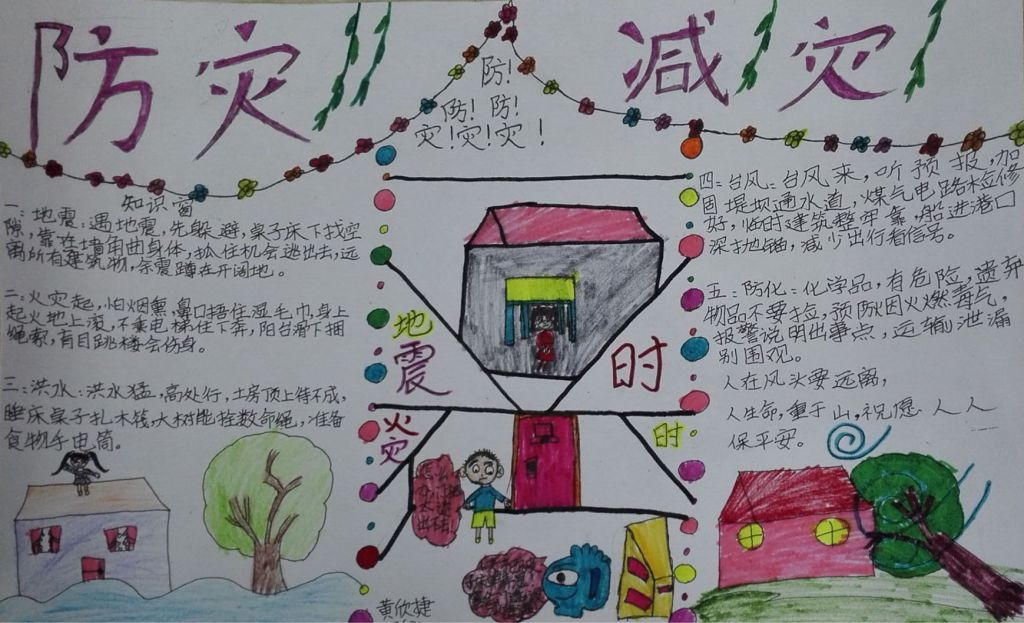 防灾
减灾
防!
防!防!
灾!灾!灾!
知识窗
一:地震:遇地震,先躲避,桌子床下找空
隙,靠在墙角曲身体,抓住机会逃出去,远
离所有建筑物,余震蹲在开阔地。
二:火灾起,怕烟熏,鼻口捂住湿毛巾,身上
起火地上滚,不乘电梯往下奔,阳台滑下捆
绳索,盲目跳楼会伤身。
三:洪水:洪水猛,高处行,土房顶上待不成,
睡床桌子扎木筏,大树能拴救命绳,准备
食物手电筒。
地震时
火灾时
黄欣捷
四:台风:台风来,听预报,加
固堤坝通水道,煤气电路检修
好,临时建筑整牢靠,船进港口
深抛锚,减少出行看信号。
五:防化:化学品,有危险,遗弃
物品不要捡,预防因火燃毒气,
报警说明出事点,运输泄漏
别围观。
人在风头要远离,
人生命,重于山,祝愿人人
保平安。